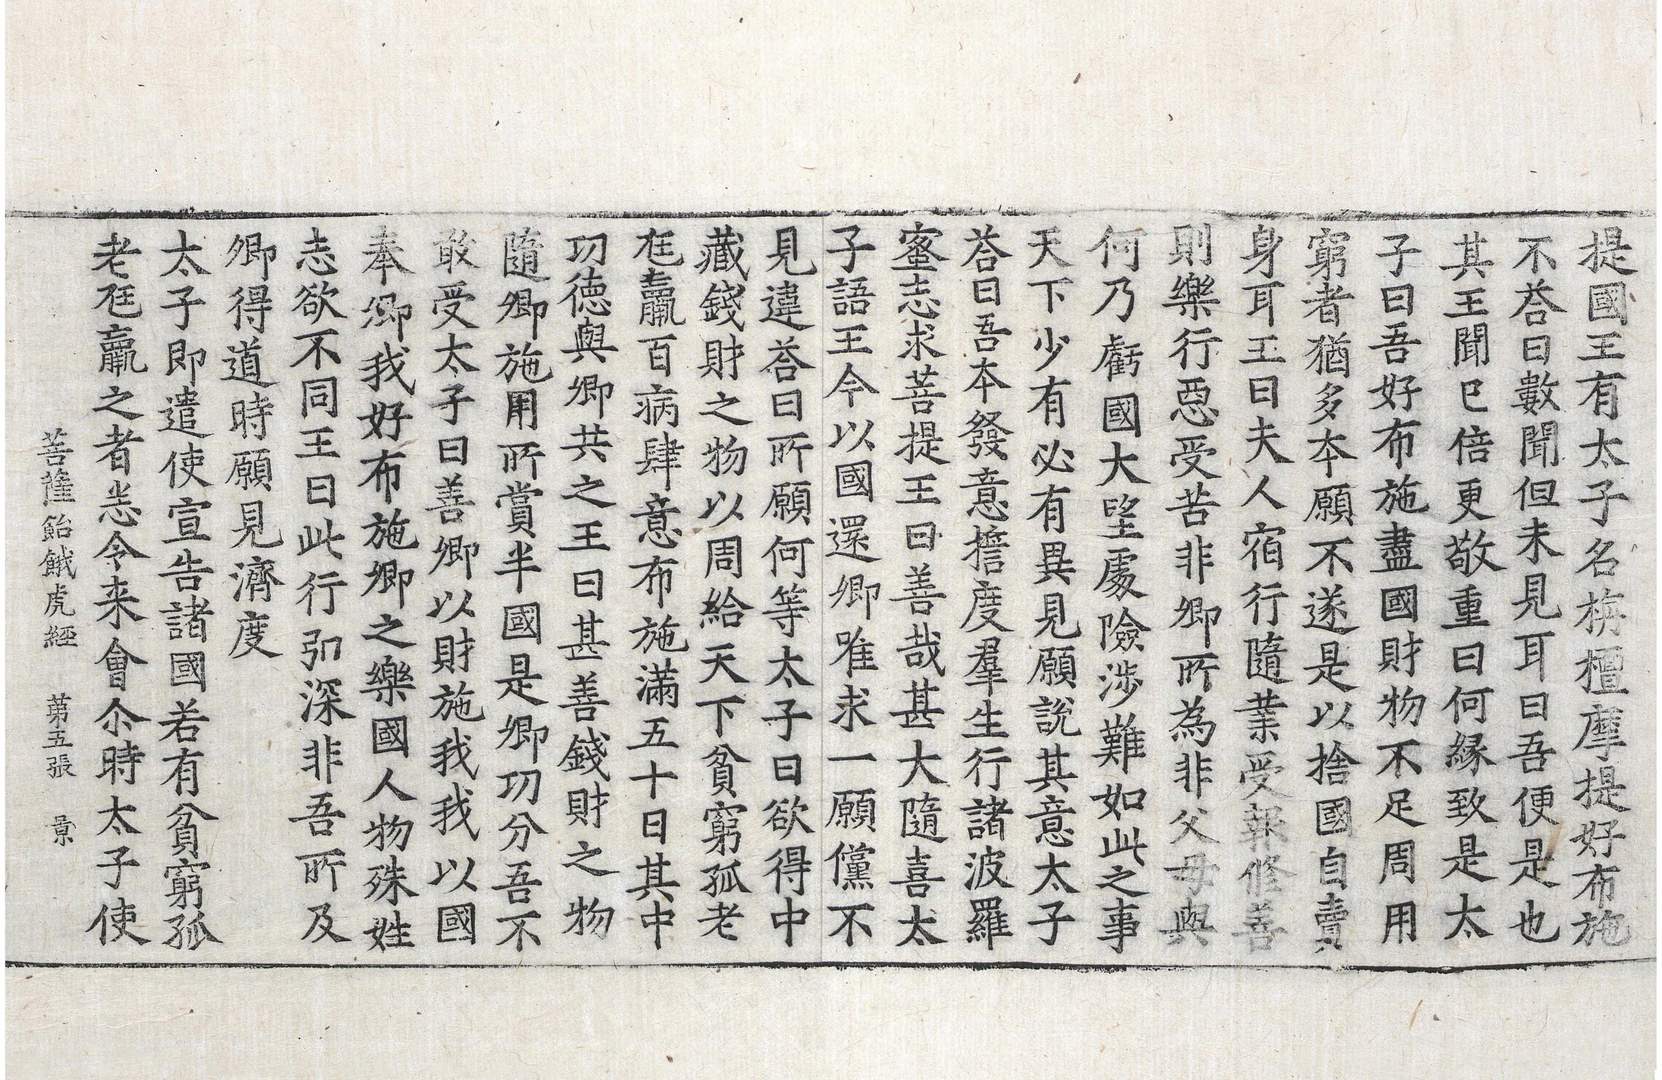 提國王有太子名栴檀摩提好布施
不荅曰數聞但未見耳曰吾便是也
其王聞已倍更敬重曰何緣致是太
子曰吾好布施盡國財物不足周用
窮者猶多本願不遂是以捨國自賣
身耳王曰夫人宿行隨業受報修善
則樂行惡受苦非卿所為非父母與
何乃虧國大望處險涉難如此之事
天下少有必有異見願說其意太子
荅曰吾本發意擔度羣生行諸波羅
蜜志求菩提王曰善哉甚大隨喜太
子語王今以國還卿唯求一願儻不
見違荅曰所願何等太子曰欲得中
藏錢財之物以周給天下貧窮孤老
尪羸百病肆意布施滿五十日其中
功德與卿共之王曰甚善錢財之物
隨卿施用所賞半國是卿功分吾不
敢受太子曰善卿以財施我我以國
奉卿我好布施卿之樂國人物殊姓
志欲不同王曰此行弘深非吾所及
卿得道時願見濟度
太子即遣使宣告諸國若有貧窮孤
老尪羸之者悉令来會尒時太子使
菩薩飴餓虎經 第五張 景